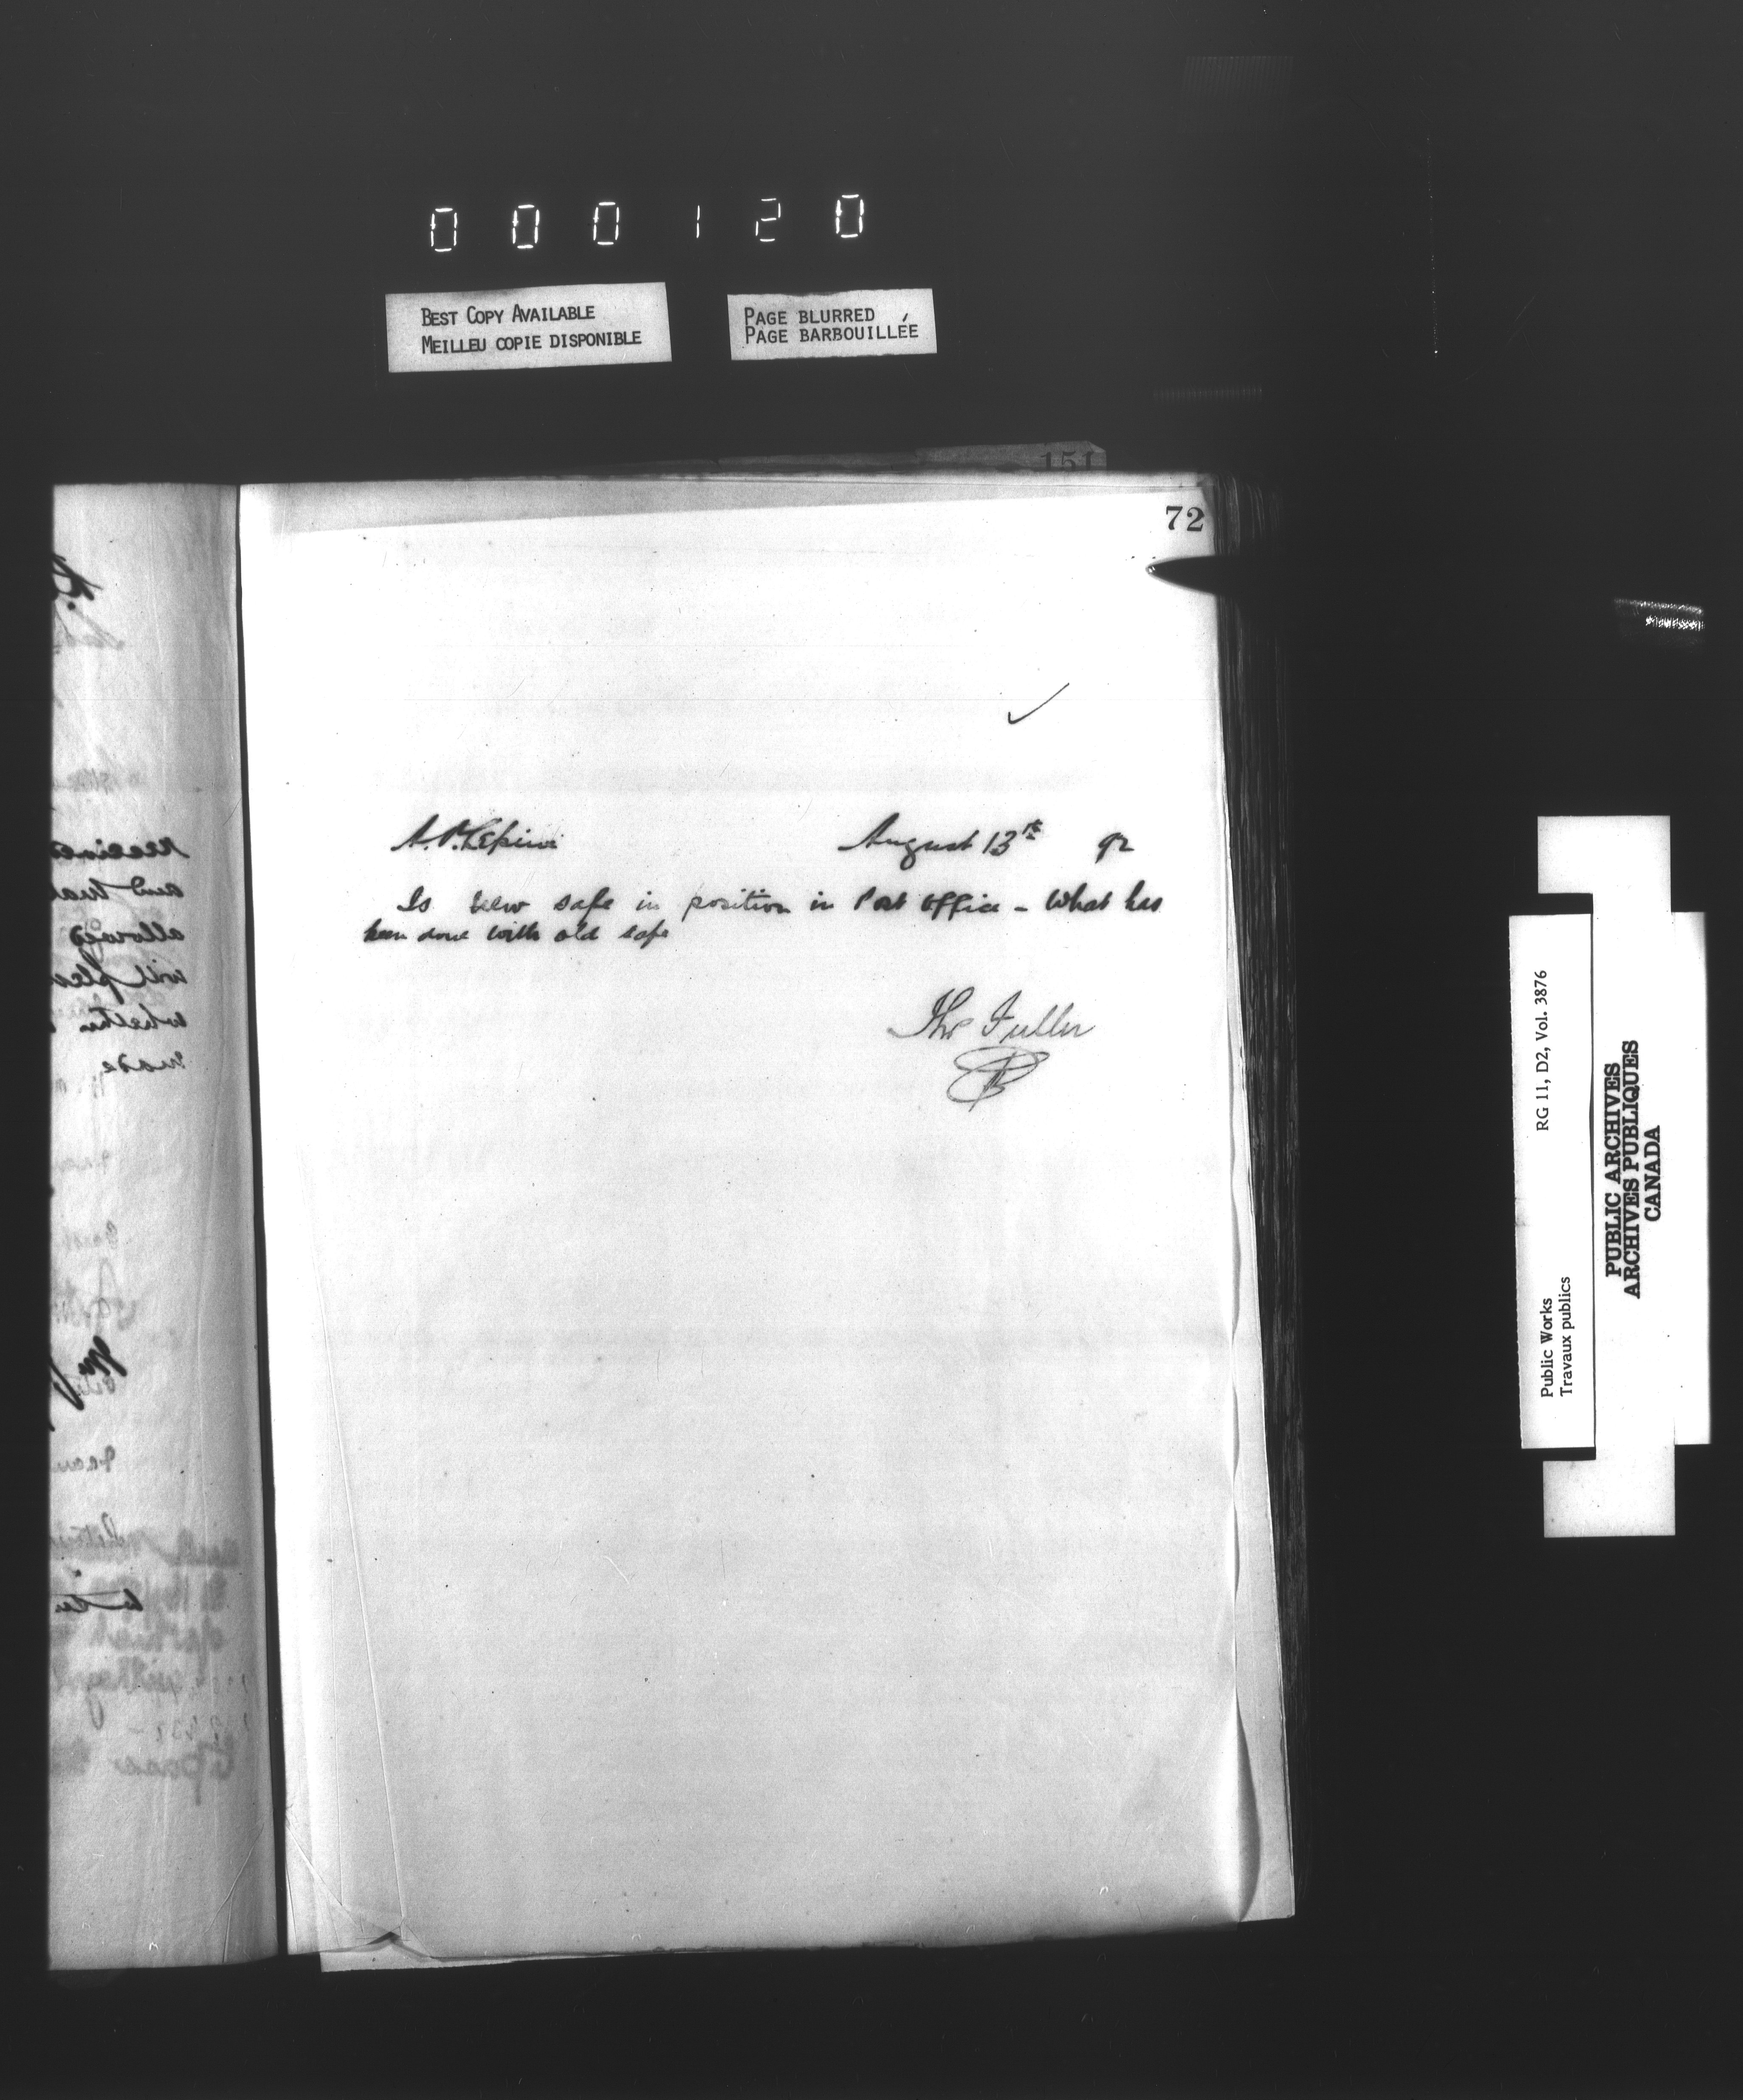 000120
BEST COPY AVAILABLE
MEILLEU COPIE DISPONIBLE
PAGE BLURRED
PAGE BARBOUILLÉE
151
72
August 13th 92
Is new safe in position in Post Office - What has
been done with old safe
Thos Fuller
RG 11, D2, Vol. 3876
Public Works
Travaux publics
PUBLIC ARCHIVES
ARCHIVES PUBLIQUES
CANADA